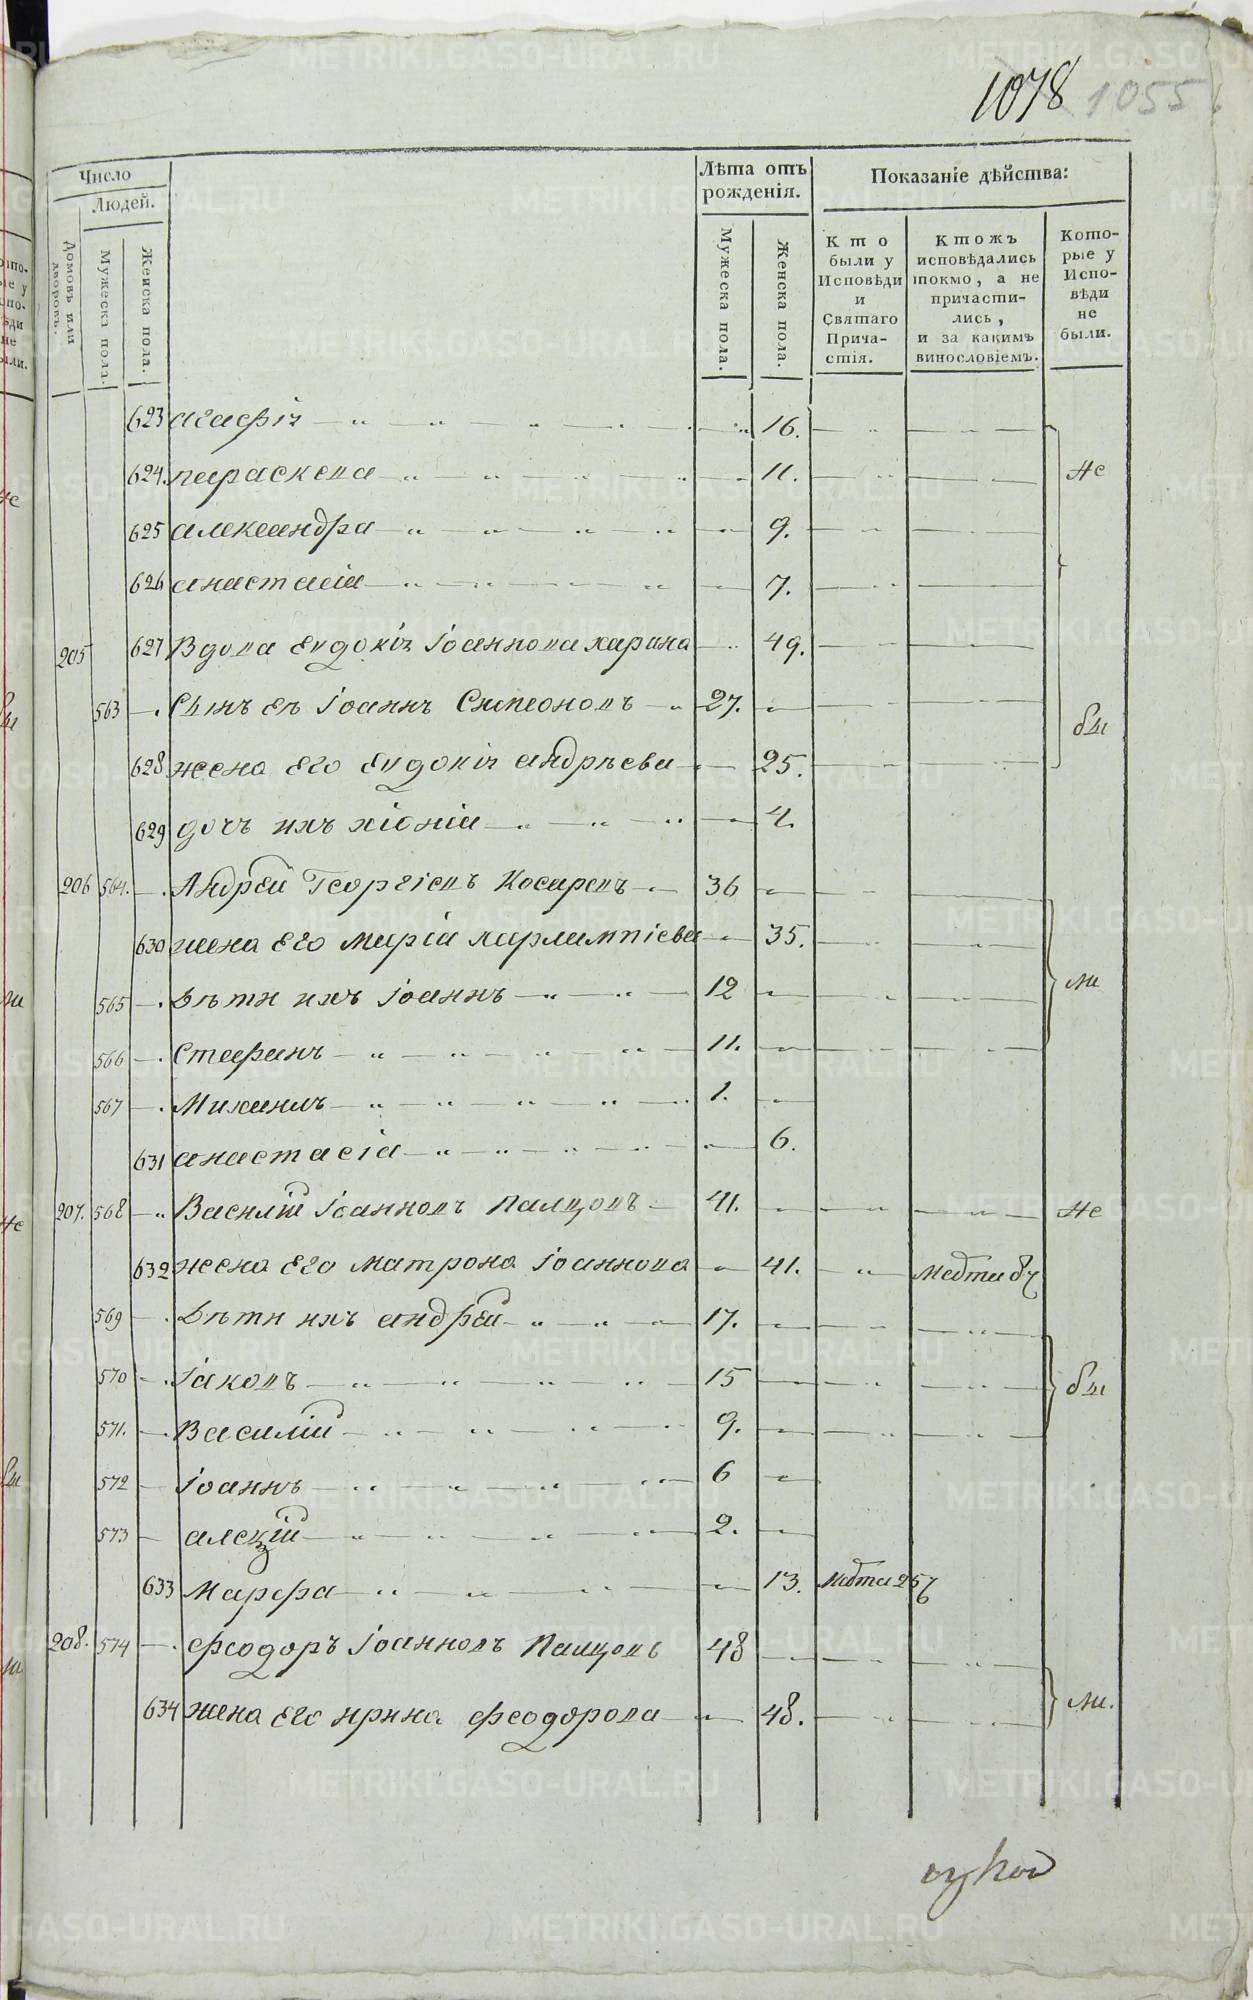 1078 1055
Число
Людей.
Домовъ или дворовъ.
Мужеска пола.
Женска пола.
Лѣта отъ рожденія.
Мужеска пола.
Женска пола.
Показаніе дѣйства:
Кто были у Исповѣди и Святаго Причастія.
Ктожъ исповѣдались токмо, а не причастились, и за какимъ винословіемъ.
Которые у Исповѣди не были.
623 агафія 16.
624. параскева 11. не
625 александра 9.
626 анастасія 7.
205 627 Вдова Евдокія Іоаннова харина 49.
563 Сынъ ея Іоаннъ Симеоновъ 27. бы
628 жена его Евдокія андрѣева 25.
629 дочь ихъ хіонія 4.
206 564. Андрей Георгіевъ Косаревъ 36
630 жена его марія харлампіева 35.
565 Дѣти ихъ Іоаннъ 12 ли
566 Стефанъ 11.
567 Михаилъ 1.
631 анастасія 6.
207. 568 Василій Іоанновъ Палцовъ 41. не
632 жена его матрона Іоаннова 41.
569 Дѣти ихъ андрей 17.
570 Іаковъ 15 бы
571. Василій 9.
572 Іоаннъ 6
573 алекцій 2.
633 Марфа 13.
208. 574 Феодоръ Іоанновъ Палцовъ 48
634 жена его ирина феодорова 48. ли.
METRIKI.GASO-URAL.RU